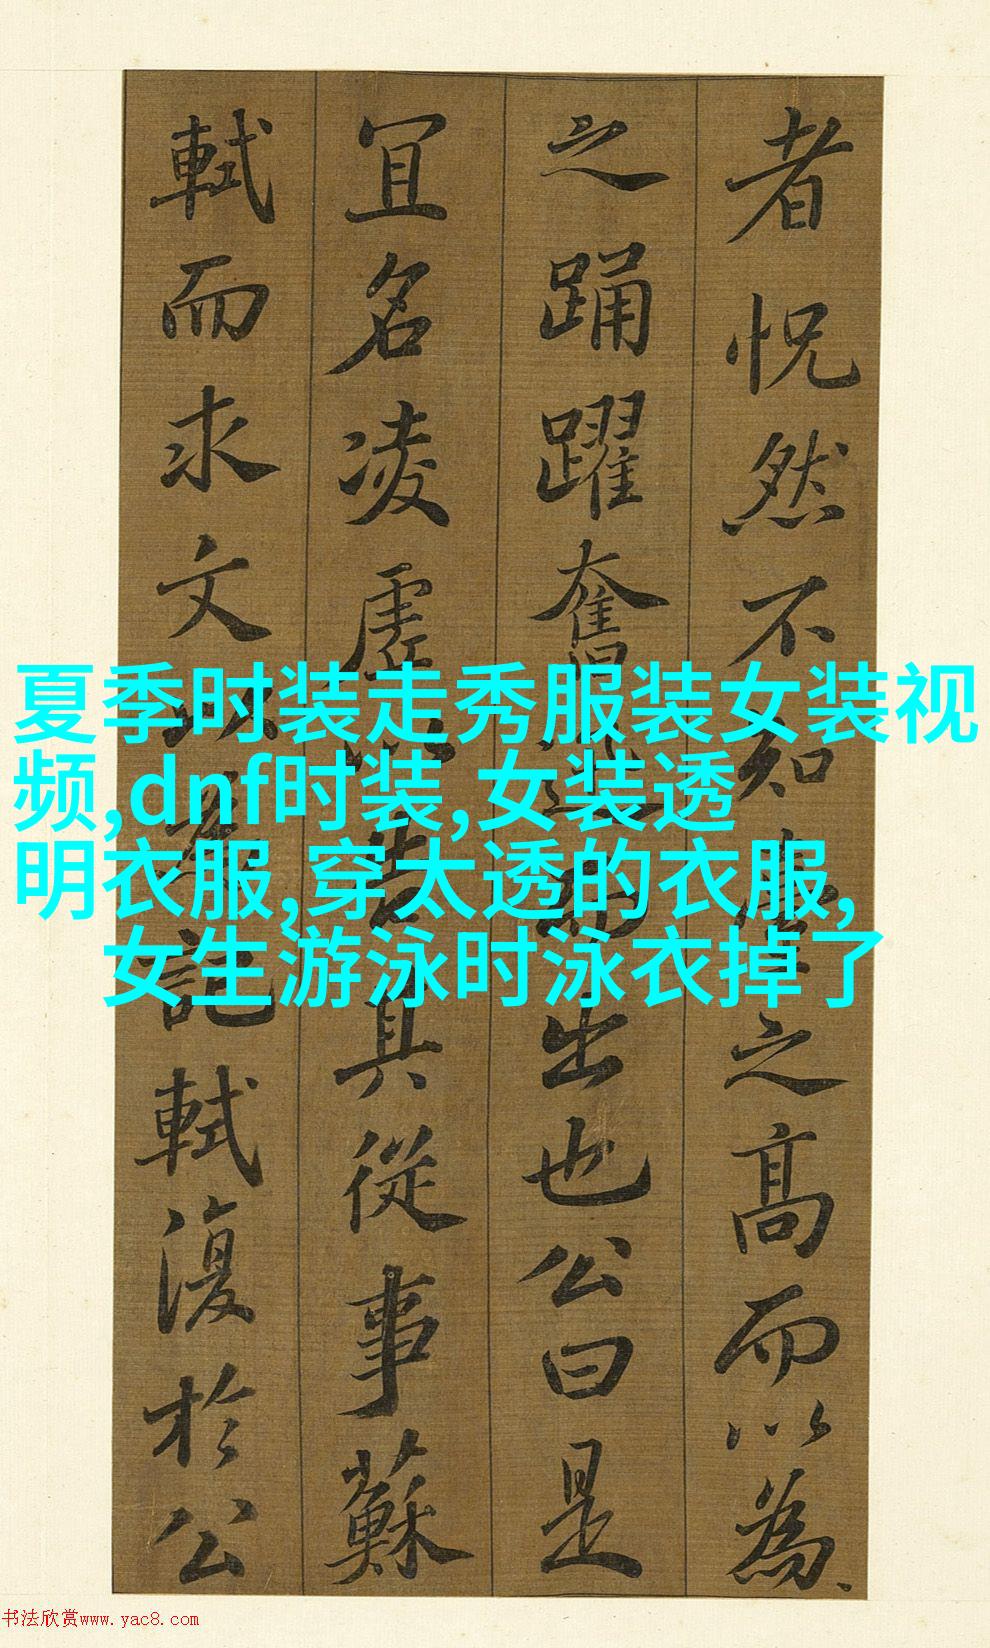 者怳然不知臺之高而以為
之踊躍奮迅而出也公曰是
宜名凌虛以告其從事蘇
軾而求文以為記軾復於公
夏季时装走秀服装女装视
频,dnf时装,女装透
明衣服,穿太透的衣服,
女生游泳时泳衣掉了
书法欣赏www.yac8.com